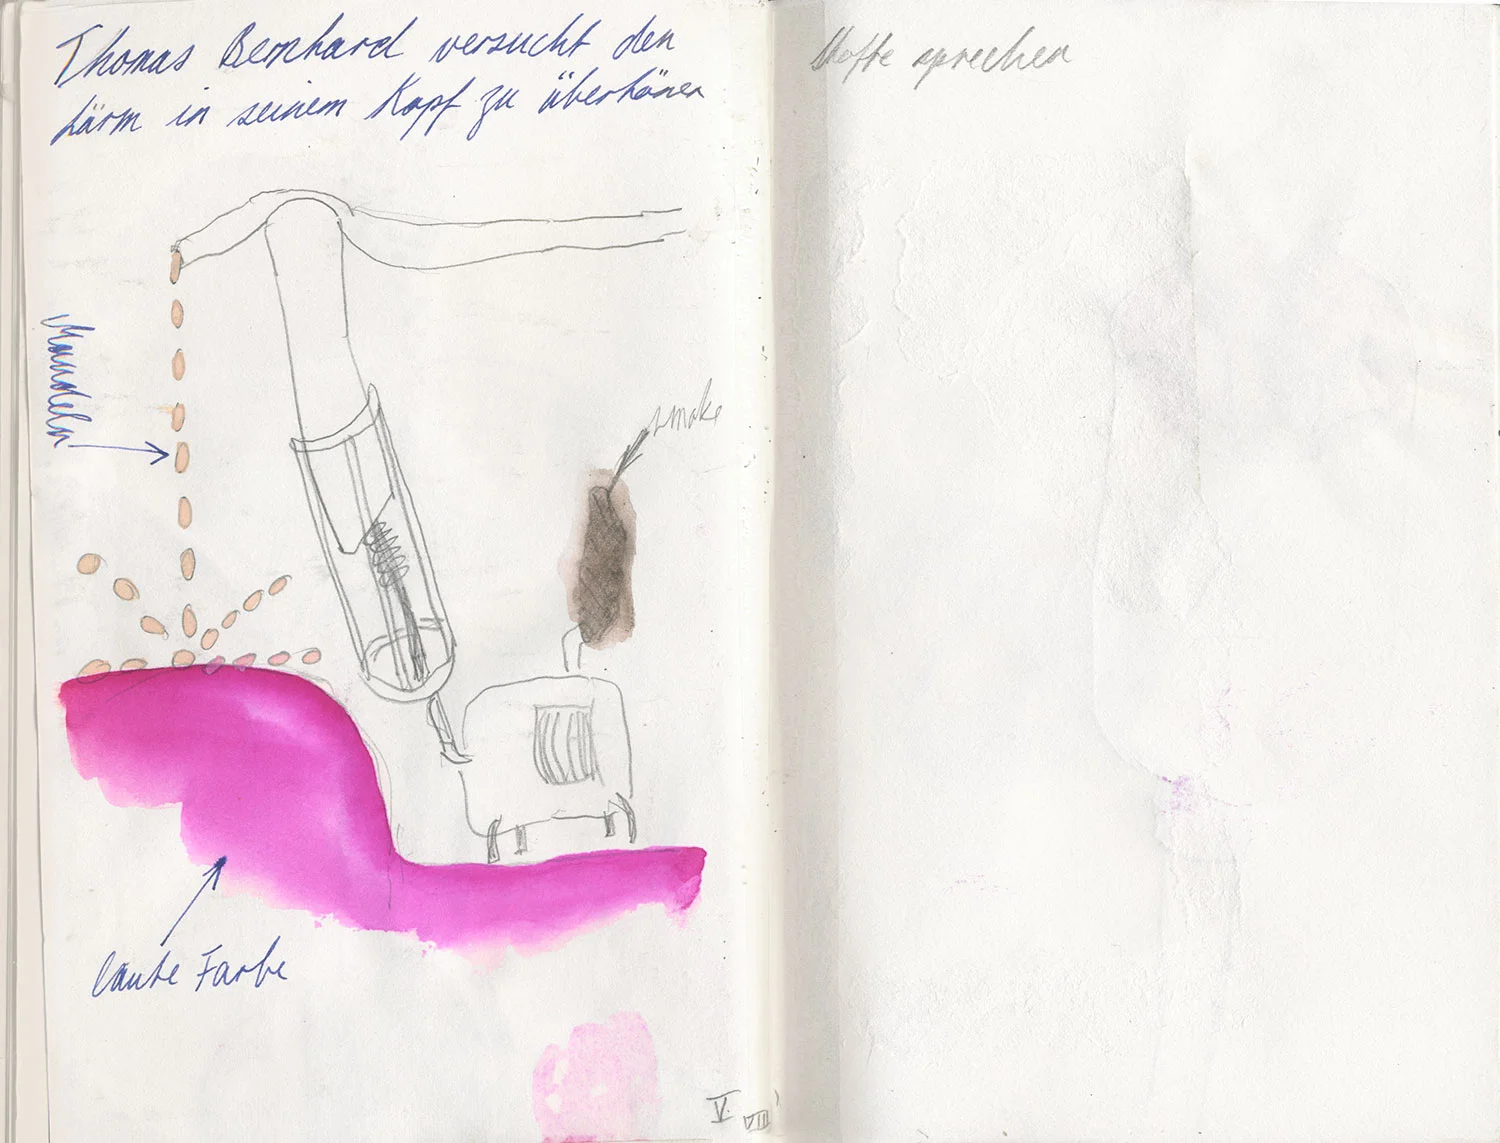 Thomas Bernhard versucht den
Lärm in seinem Kopf zu übertönen
Mandeln
smoke
laute Farbe
V. VIII
Stoffe sprechen